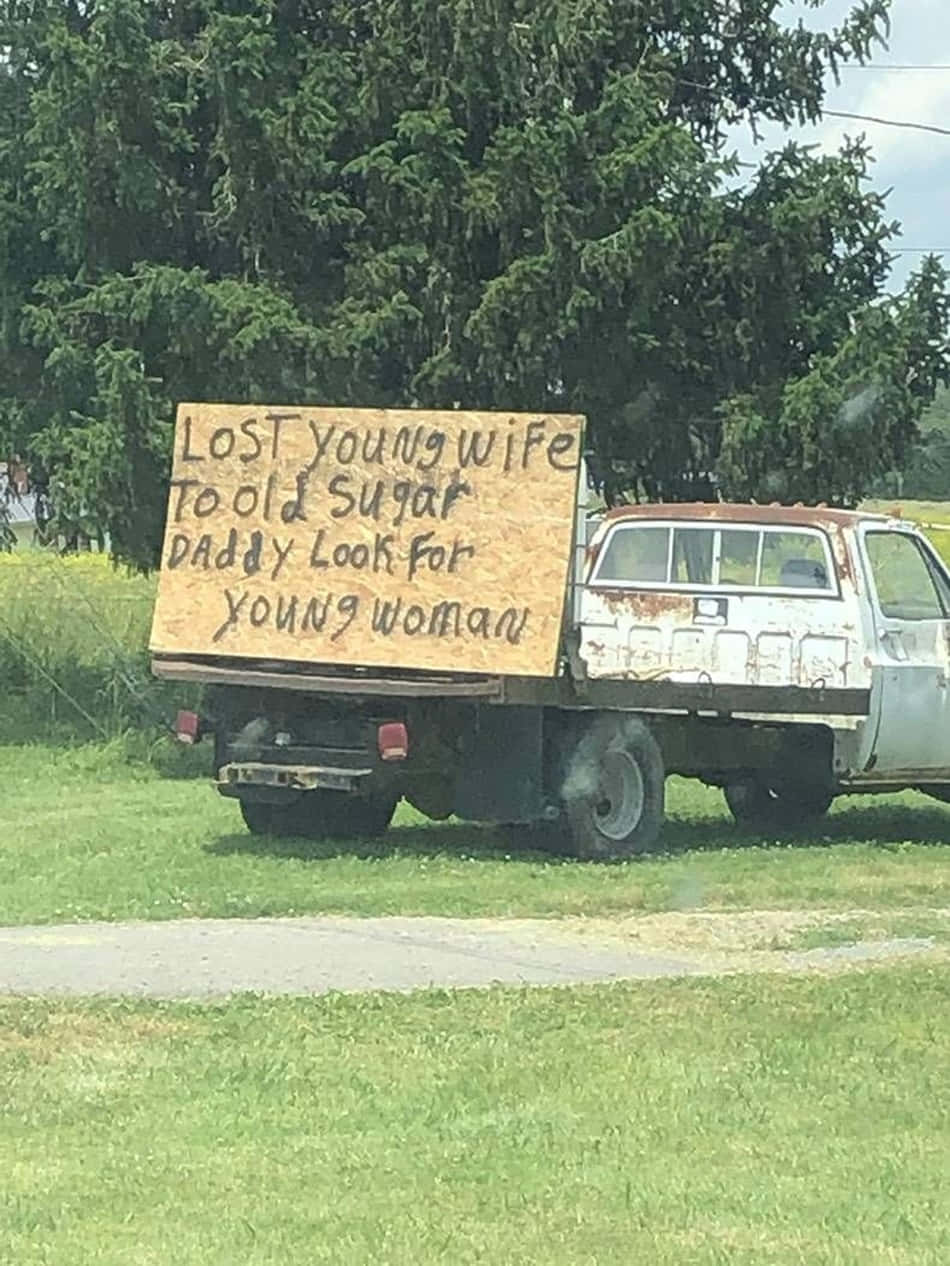 LOST young wife
To old Sugar
DAddy Look For
young woman